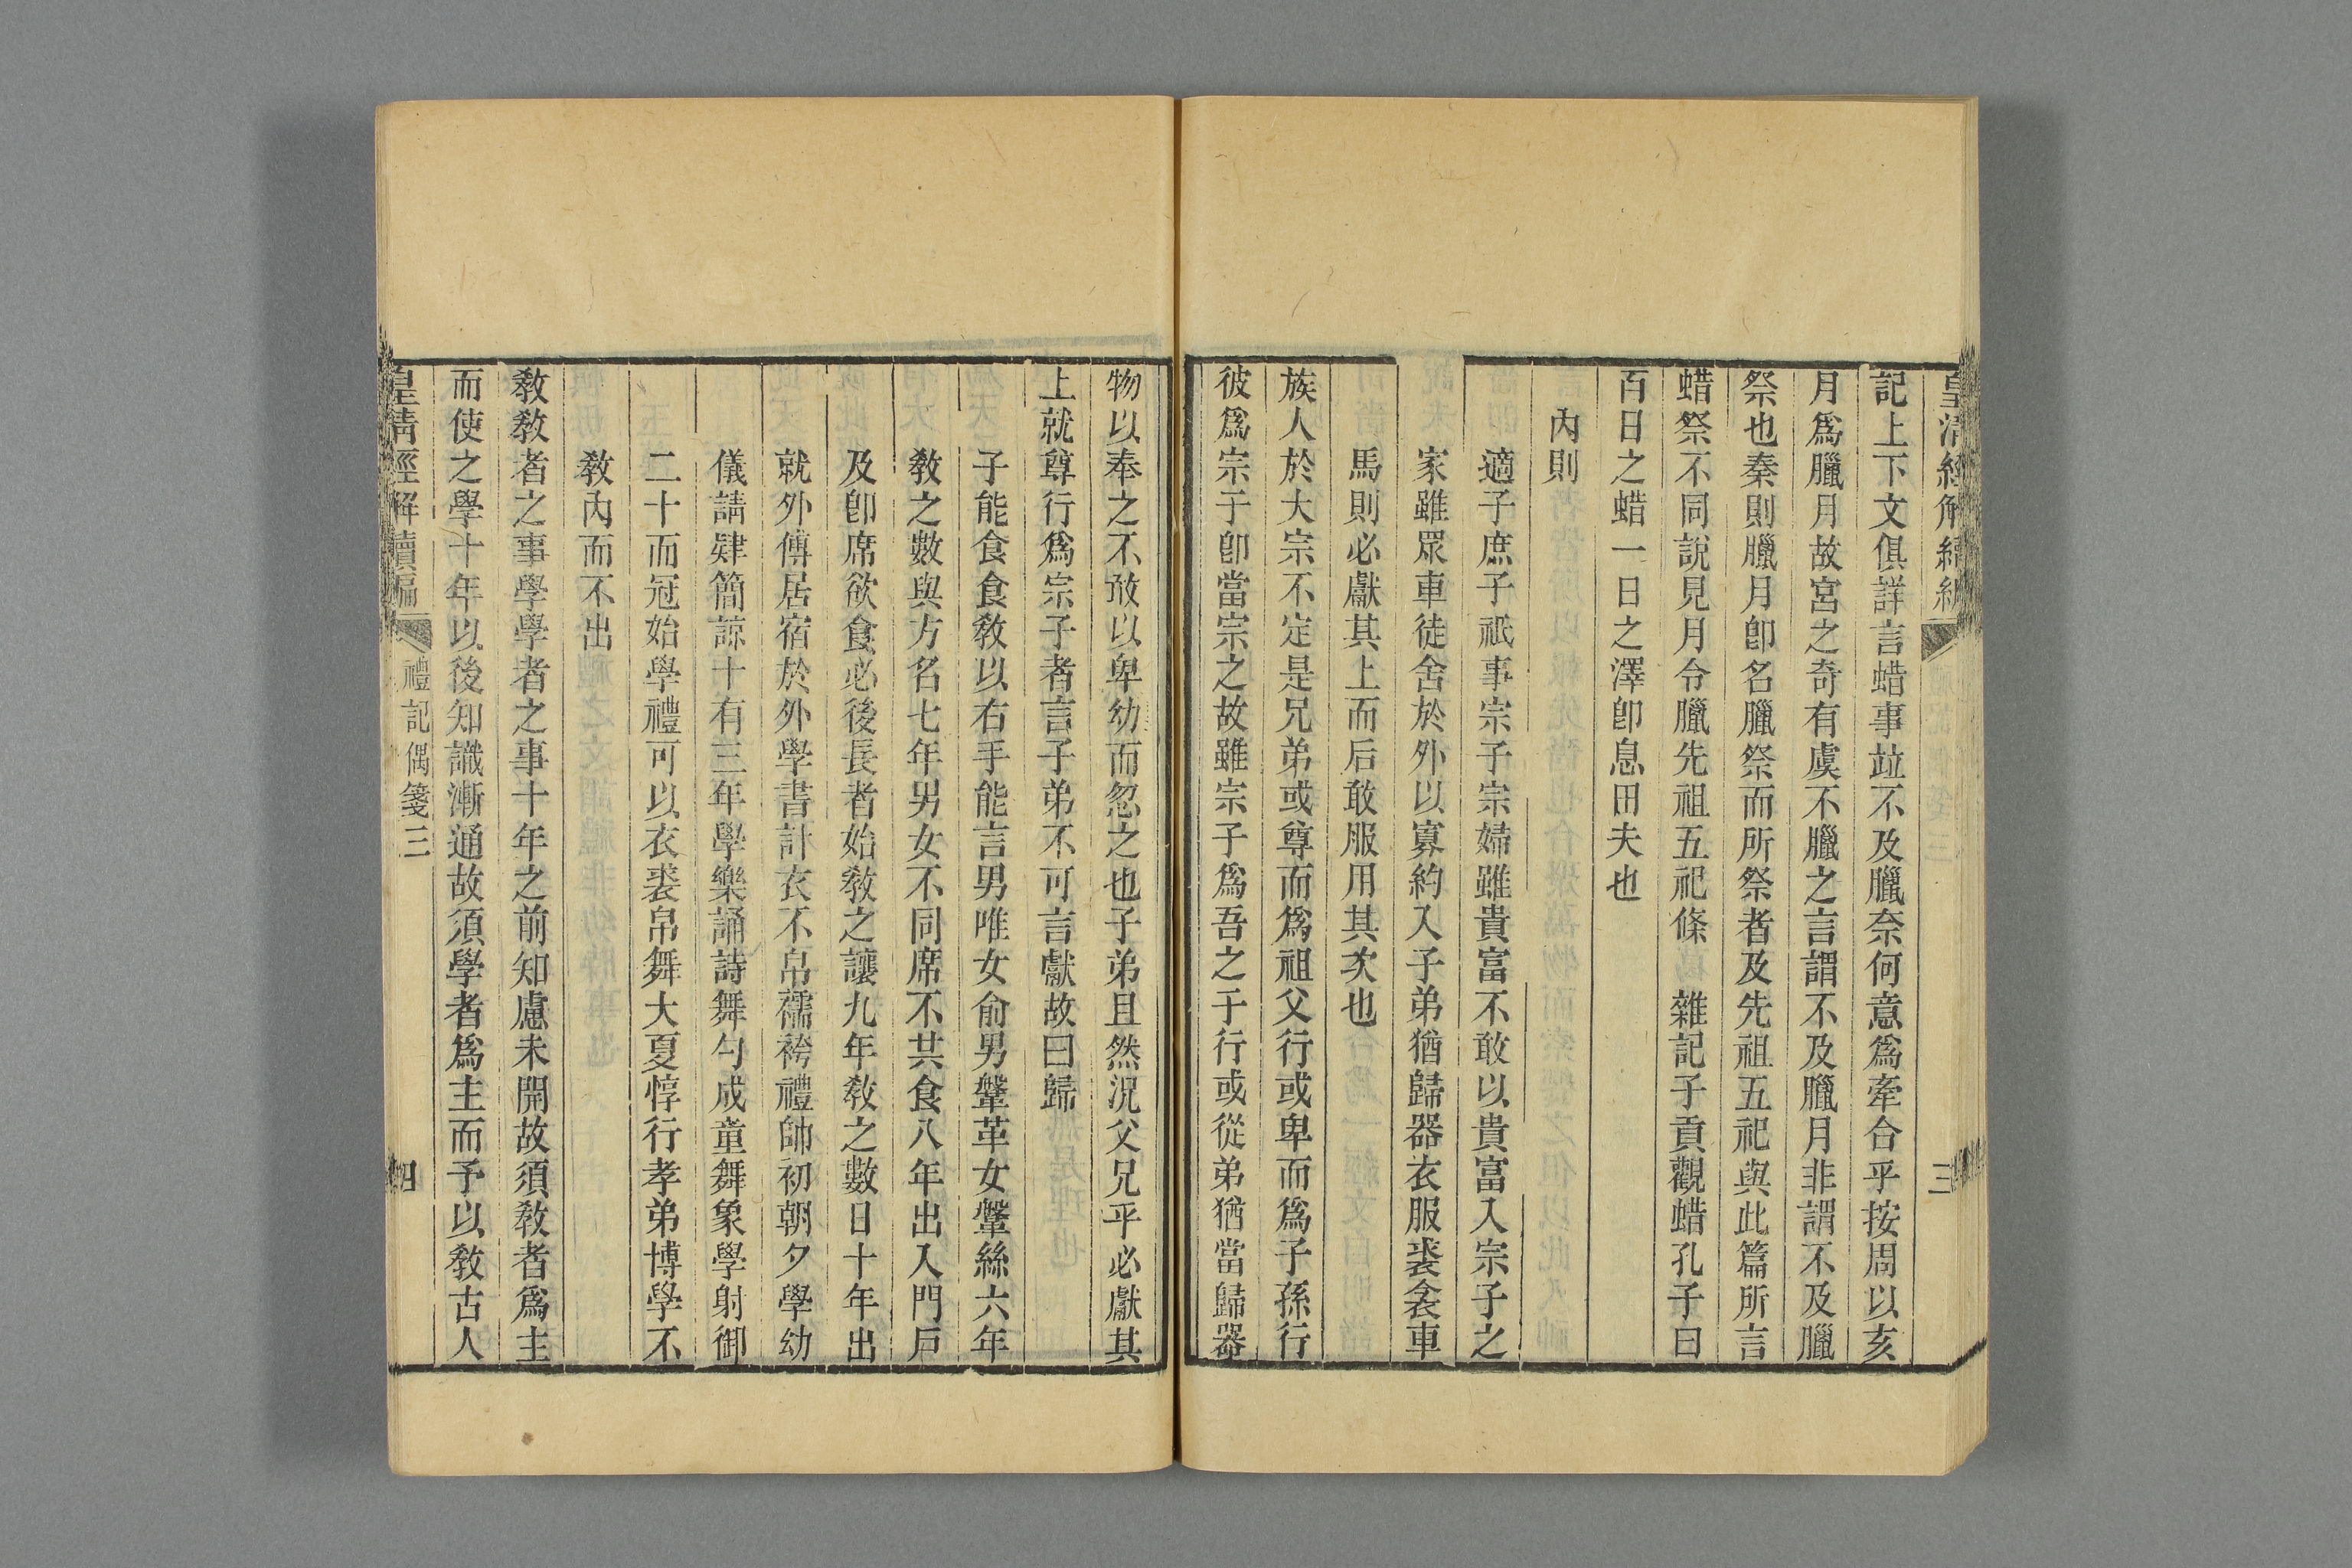 皇清經解續編
三
記上下文俱詳言蜡事竝不及臘奈何意爲牽合乎按周以亥
月爲臘月故宮之奇有虞不臘之言謂不及臘月非謂不及臘
祭也秦則臘月卽名臘祭而所祭者及先祖五祀與此篇所言
蜡祭不同說見月令臘先祖五祀條　雜記子貢觀蜡孔子曰
百日之蜡一日之澤卽息田夫也
內則
適子庶子祇事宗子宗婦雖貴富不敢以貴富入宗子之
家雖眾車徒舍於外以寡約入子弟猶歸器衣服裘衾車
馬則必獻其上而后敢服用其次也
族人於大宗不定是兄弟或尊而爲祖父行或卑而爲子孫行
彼爲宗子卽當宗之故雖宗子爲吾之子行或從弟猶當歸器
物以奉之不敢以卑幼而忽之也子弟且然況父兄乎必獻其
上就尊行爲宗子者言子弟不可言獻故曰歸
子能食食敎以右手能言男唯女俞男鞶革女鞶絲六年
敎之數與方名七年男女不同席不共食八年出入門戸
及卽席欲食必後長者始敎之讓九年敎之數日十年出
就外傅居宿於外學書計衣不帛襦袴禮帥初朝夕學幼
儀請肄簡諒十有三年學樂誦詩舞勺成童舞象學射御
二十而冠始學禮可以衣裘帛舞大夏惇行孝弟博學不
敎內而不出
敎敎者之事學學者之事十年之前知慮未開故須敎者爲主
而使之學十年以後知識漸通故須學者爲主而予以敎古人
皇清經解續編
禮記偶箋三
四